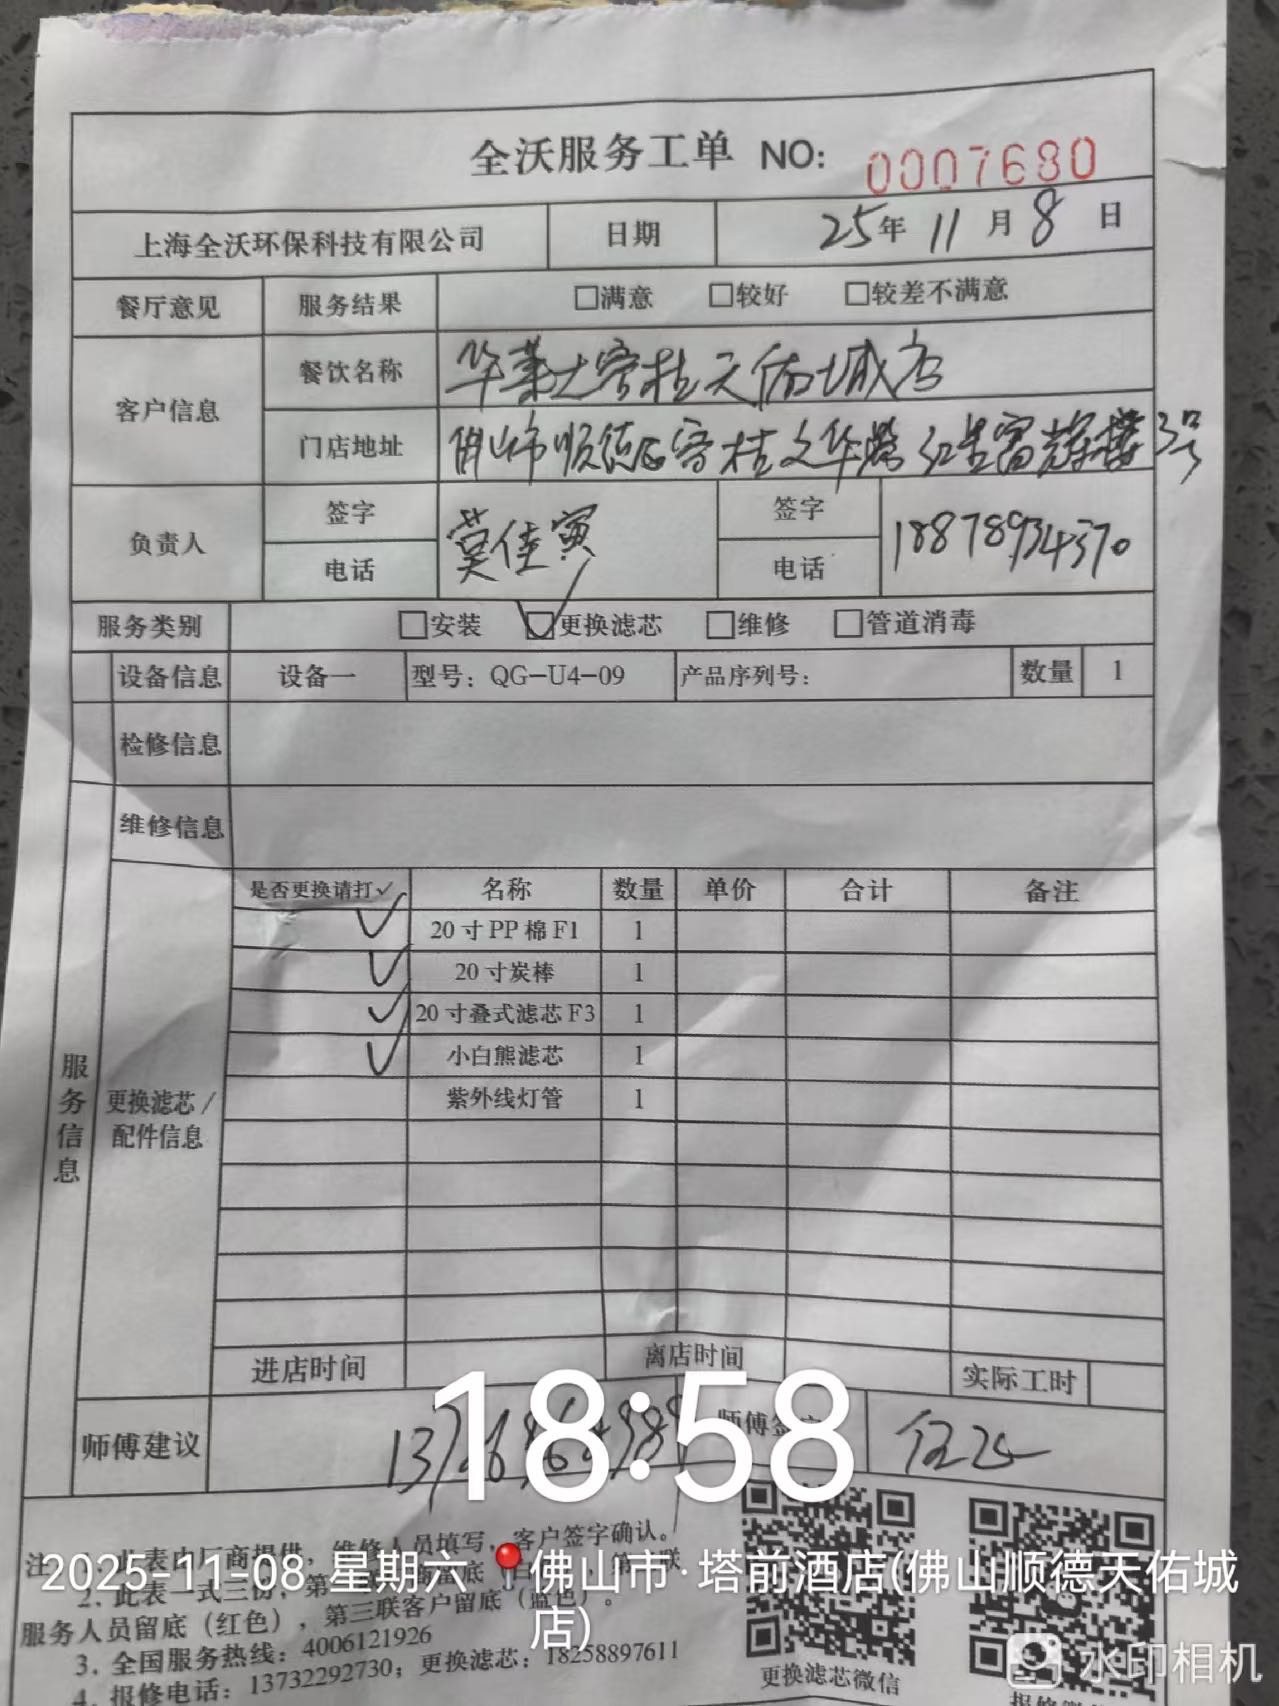 全沃服务工单 NO: 0007680
上海全沃环保科技有限公司 日期 25年 11 月 8 日
餐厅意见 服务结果 □满意 □较好 □较差不满意
客户信息 餐饮名称 华莱士容桂天佑城店
门店地址 佛山市顺德区容桂文华路红星富辉楼3号
负责人 签字 莫佳寅 签字
电话 电话 18878934370
服务类别 □安装 ☑更换滤芯 □维修 □管道消毒
设备信息 设备一 型号：QG-U4-09 产品序列号： 数量 1
检修信息
维修信息
服务信息
更换滤芯/配件信息
是否更换请打✓ 名称 数量 单价 合计 备注
✓ 20寸PP棉F1 1
✓ 20寸炭棒 1
✓ 20寸叠式滤芯F3 1
✓ 小白熊滤芯 1
紫外线灯管 1
进店时间 离店时间 实际工时
师傅建议 师傅签
18:58
注 此表由厂商提供，维修人员填写，客户签字确认。
2. 此表一式三份，第
服务人员留底（红色），第三联客户留底（蓝色）。
3. 全国服务热线：4006121926
4. 报修电话：13732292730；更换滤芯：18258897611
更换滤芯微信
2025-11-08 星期六 佛山市·塔前酒店(佛山顺德天佑城店)
水印相机